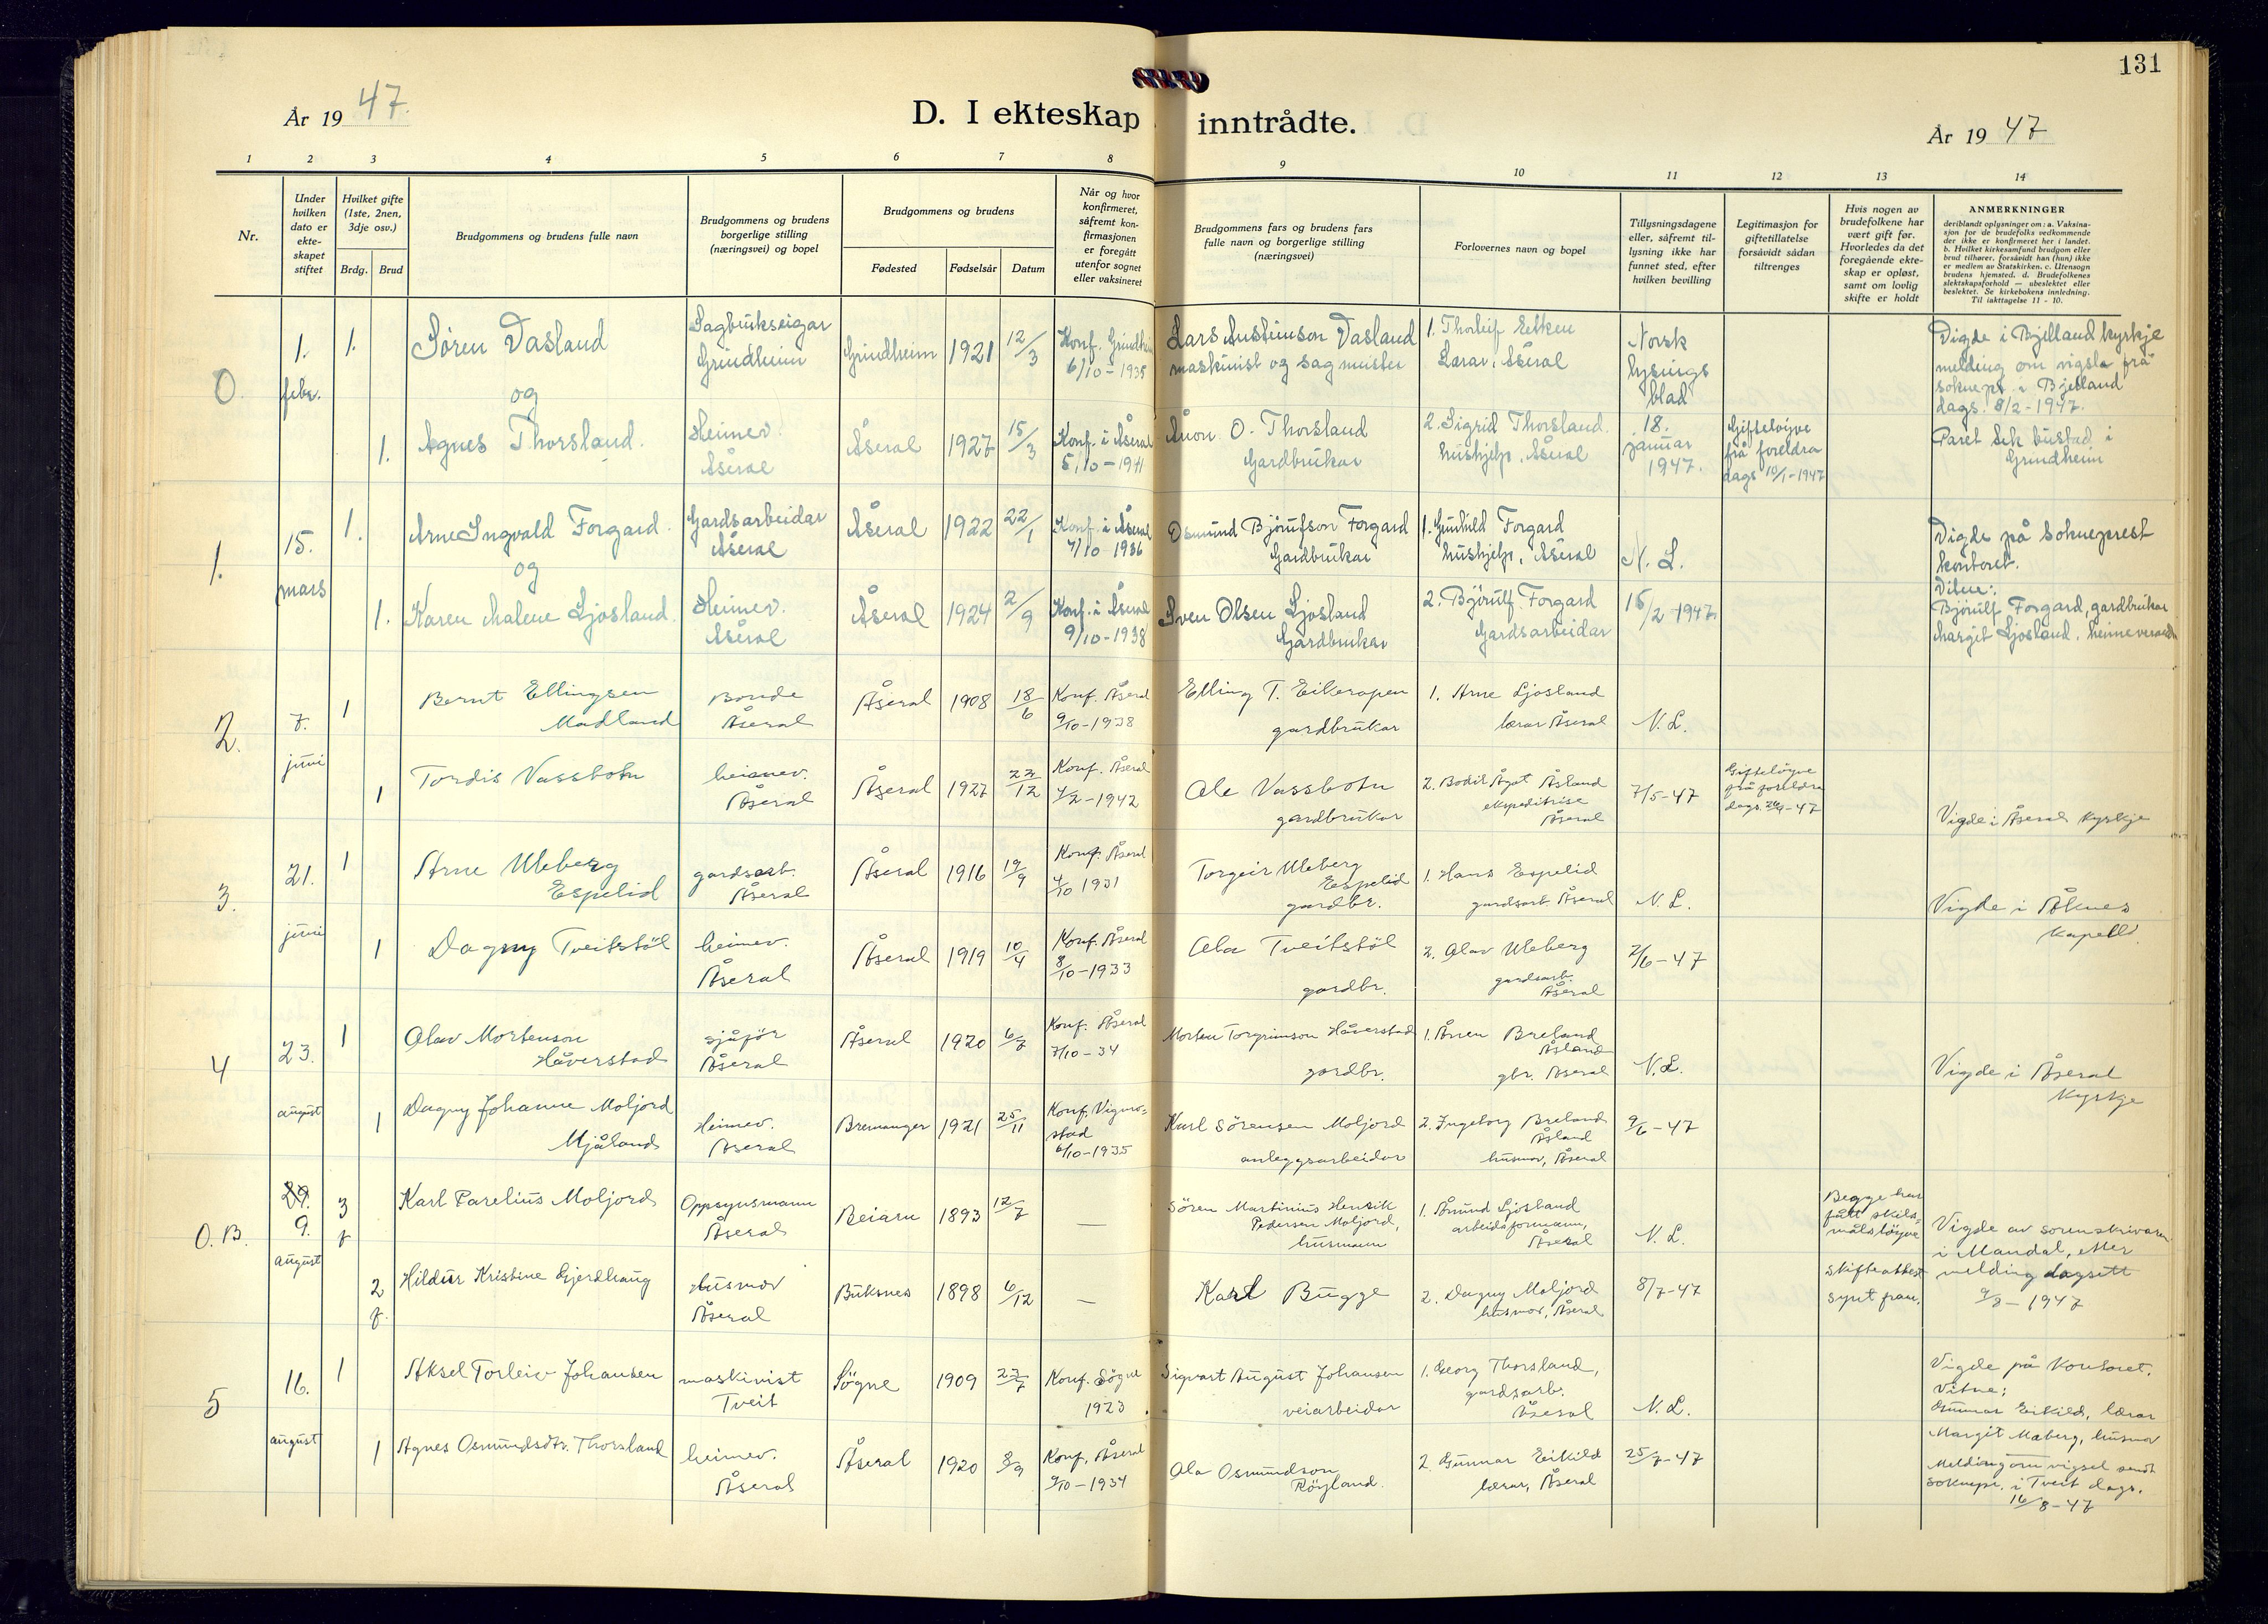 131
År 19 47.
D. I ekteskap inntrådte.
År 19 47
1 2 3 4 5 6 7 8 9 10 11 12 13 14
Nr.
Under
hvilken
dato er
ekte-
skapet
stiftet
Hvilket gifte
(1ste, 2nen,
3dje osv.)
Brdg. Brud
Brudgommens og brudens fulle navn
Brudgommens og brudens
borgerlige stilling
(næringsvei) og bopel
Brudgommens og brudens
Fødested Fødselsår Datum
Når og hvor
konfirmeret,
såfremt kon-
firmasjonen
er foregått
utenfor sognet
eller vaksineret
Brudgommens fars og brudens fars
fulle navn og borgerlige stilling
(næringsvei)
Forlovernes navn og bopel
Tillysningsdagene
eller, såfremt til-
lysning ikke har
funnet sted, efter
hvilken bevilling
Legitimasjon for
giftetillatelse
forsåvidt sådan
tiltrenges
Hvis nogen av
brudefolkene har
vært gift før.
Hvorledes da det
foregående ekte-
skap er opløst,
samt om lovlig
skifte er holdt
ANMERKNINGER
deriblandt oplysninger om: a. Vaksina-
sjon for de brudefolks vedkommende
der ikke er konfirmeret her i landet.
b. Hvilket kirkesamfund brudgom eller
brud tilhører, forsåvidt han (hun) ikke
er medlem av Statskirken. c. Utensogn
brudens hjemsted. d. Brudefolkenes
slektskapsforhold — ubeslektet eller
beslektet. Se kirkebokens innledning.
Til iakttagelse 11 - 10.
0.
1.
febr.
1.
Sören Vasland
og
Sagbrukseigar
Grindheim
Grindheim
1921
12/3
Konf. Grindheim
6/10 - 1935
maskinist og sagmeister
1. Thorleif
Lærar, Åseral
Norsk
lysings
blad
18.
januar
1947.
Vigde i Bjelland kyrkje
melding om vigsla frå
soknepr. i Bjelland
dags. 8/2 - 1947.
Paret fek bustad i
Grindheim
1.
Agnes Thorsland.
Heimev.
Åseral
Åseral
1927
15/3
Konf. i Åseral
5/10 - 1941
Ånon O. Thorsland
Gardbrukar
2. Sigrid Thorsland.
hushjelp, Åseral
Gifteløyve
frå foreldra
dags 10/1-1947
1.
15.
mars
1.
Arne Ingvald Forgard.
og
Gardsarbeidar
Åseral
Åseral
1922
22/1
Konf. i Åseral
4/10 1936
Osmund Bjørufson Forgard
Gardbrukar
1. Gunhild Forgard
hushjelp, Åseral
N. L.
15/2 1947.
Vigde på Sokneprest
kontoret.
Vitne:
Bjørulf Forgard, gardbrukar
Margit Ljosland, heimeverande
1.
Karen Malene Ljosland.
Heimev.
Åseral
Åseral
1924
2/9
Konf. i Åseral
9/10 - 1938
Sven Olsen Ljosland
Gardbrukar
2. Bjørulf Forgard
Gardsarbeidar
2.
7.
juni
1
Bernt Ellingsen
Madland
Bonde
Åseral
Åseral
1908
18/6
Konf. Åseral
9/10 - 1938
Elling T. Eikerapen
gardbrukar
1. Arne Ljosland
lærar Åseral
N. L.
7/5 - 47
1
Tordis Vassbotn
heimev.
Åseral
Åseral
1927
22/12
Konf. Åseral
4/2 - 1942
Ole Vassbotn
gardbrukar
2. Bodil Ågot Åsland
ekspeditrise
Åseral
Gifteløyve
frå foreldra
Vigde i Åseral kyrkje
3.
21.
juni
1
Arne Uleberg
Espelid
gardsarb.
Åseral
Åseral
1916
19/9
Konf. Åseral
4/10 1931
Torgeir Uleberg
Espelid
gardbr.
1. Hans Espelid
gardsarb. Åseral
N. L.
2/6 - 47
Vigde i Åknes
kapell.
1
Dagny Tveitstöl
heimev.
Åseral
Åseral
1919
10/4
Konf. Åseral
8/10 - 1933
Ola Tveitstöl
gardbr.
2. Olav Uleberg
gardsarb.
Åseral
4
23.
august
1
Olav Mortenson
Håverstad
sjåfør
Åseral
Åseral
1920
6/7
Konf. Åseral
7/10 - 34
Morten Torgrimson Håverstad
gardbr.
1. Ånen Breland
Åsland
gbr. Åseral
N. L.
9/6 - 47
Vigde i Åseral
kyrkje
1
Dagny Johanne Moljord
Mjåland
Heimev.
Åseral
Bremanger
1921
25/11
Konf. Vigmo-
stad
6/10 - 1935
Karl Sörensen Moljord
anleggsarbeidar
2. Ingeborg Breland
Åsland
husmor, Åseral
O. B.
29.
9.
august
3
f
Karl Parelius Moljord
Oppsynsmann
Åseral
Beiarn
1893
12/7
—
Sören Martinius Henrik
Pedersen Moljord,
husmann
1. Åmund Ljosland
arbeidsformann,
Åseral
N. L.
8/7 - 47
Begge har
fått skils-
målsløyve
Skifteattest
synt fram.
Vigde av sorenskrivaren
i Mandal, etter
melding dagsett
9/8 - 1947
2
f.
Hildur Kristine Gjerdhaug
Husmor
Åseral
Buksnes
1898
6/12
—
Karl Bugge
2. Dagny Moljord
husmor, Åseral
5
16.
august
1
Aksel Torleiv Johansen
maskinist
Tveit
Søgne
1909
22/7
Konf. Søgne
1923
Sigvart August Johansen
veiarbeidar
1. Georg Thorsland,
gardsarb.
Åseral
N. L.
25/7 - 47
Vigde på kontoret.
Vitne:
Gunnar Eikild, lærar
Margit Møberg, husmor
Melding om vigsel sendt
soknepr. i Tveit dags.
16/8 - 47
1
Agnes Osmundsdtr. Thorsland
heimev.
Åseral
Åseral
1920
8/9
Konf. Åseral
9/10 - 1934
Ola Osmundson
Röyland.
2. Gunnar Eikild
lærar, Åseral